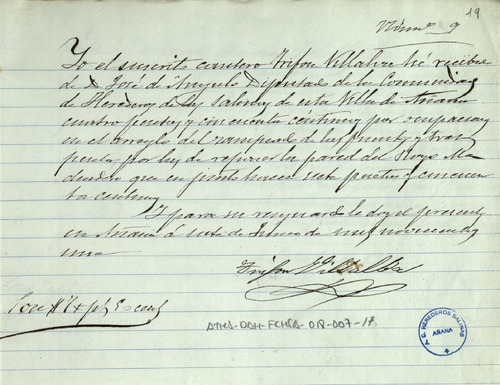 19
Núm. 9
Yo el suscrito cantero Trifon Villalba hé recibido
de D. José de Angulo Diputado de la Comunidad
de Herederos de las Salinas de esta Villa de Añana
cuatro pesetas y cincuenta céntimos por
en el arreglo del de las fuentes y tres
pesetas por los de reparar la pared del Royo
que en junto hacen siete pesetas y cincuen
ta centimos
Y para su resguardo le doy el presente
en Añana á siete de de mil novecientos
uno
Trifon Villalba
Son 7 ptas 50 cent
ATHA-DAH-FCHSA-018-007-17
T. G. HEREDEROS SALINAS
AÑANA